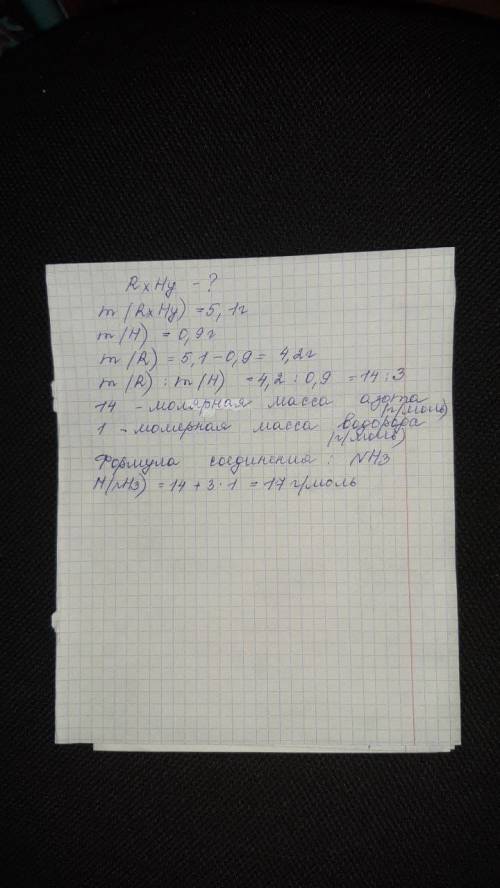 RxHy - ?
m(RxHy) = 5,1г
m(H) = 0,9г
m(R) = 5,1 - 0,9 = 4,2г
m(R) : m(H) = 4,2 : 0,9 = 14 : 3
14 - молярная масса азота (г/моль)
1 - молярная масса водорода (г/моль)
Формула соединения : NH3
M(NH3) = 14 + 3·1 = 17 г/моль